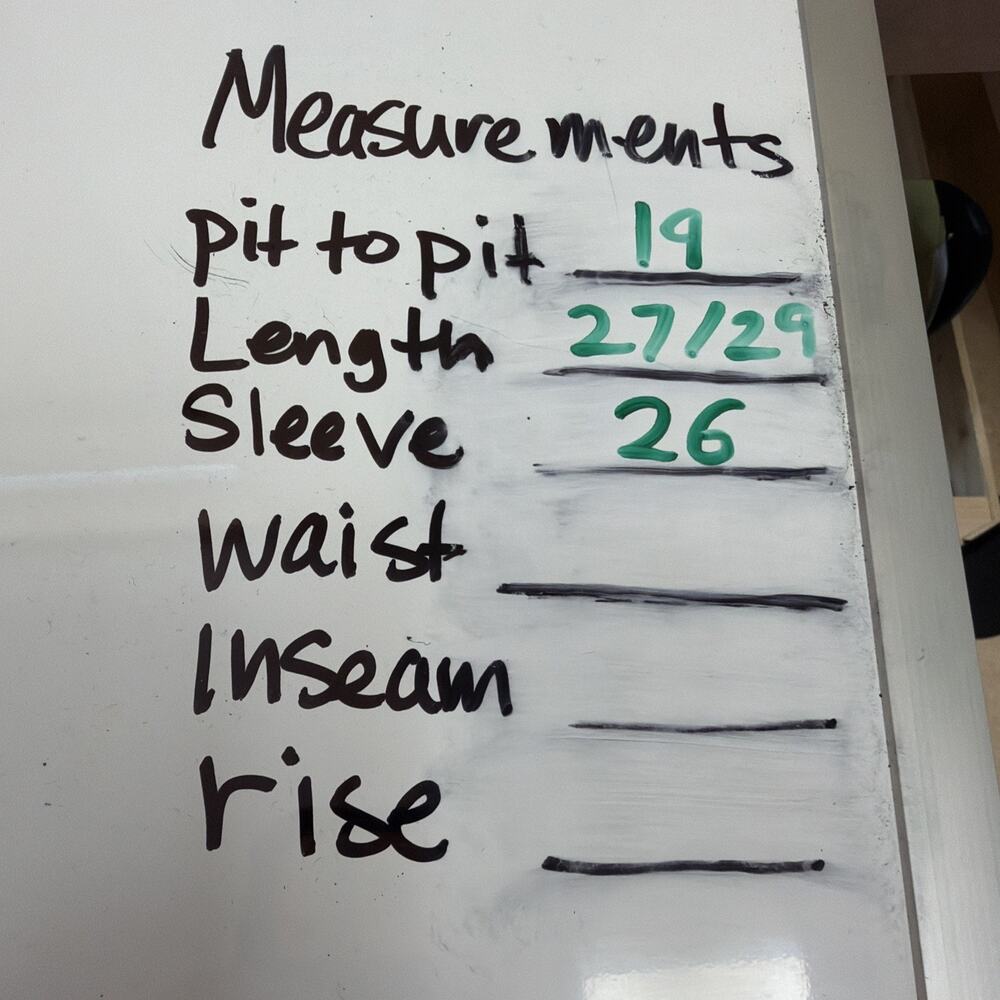 Measurements
pit to pit 19
Length 27/29
Sleeve 26
waist
Inseam
rise